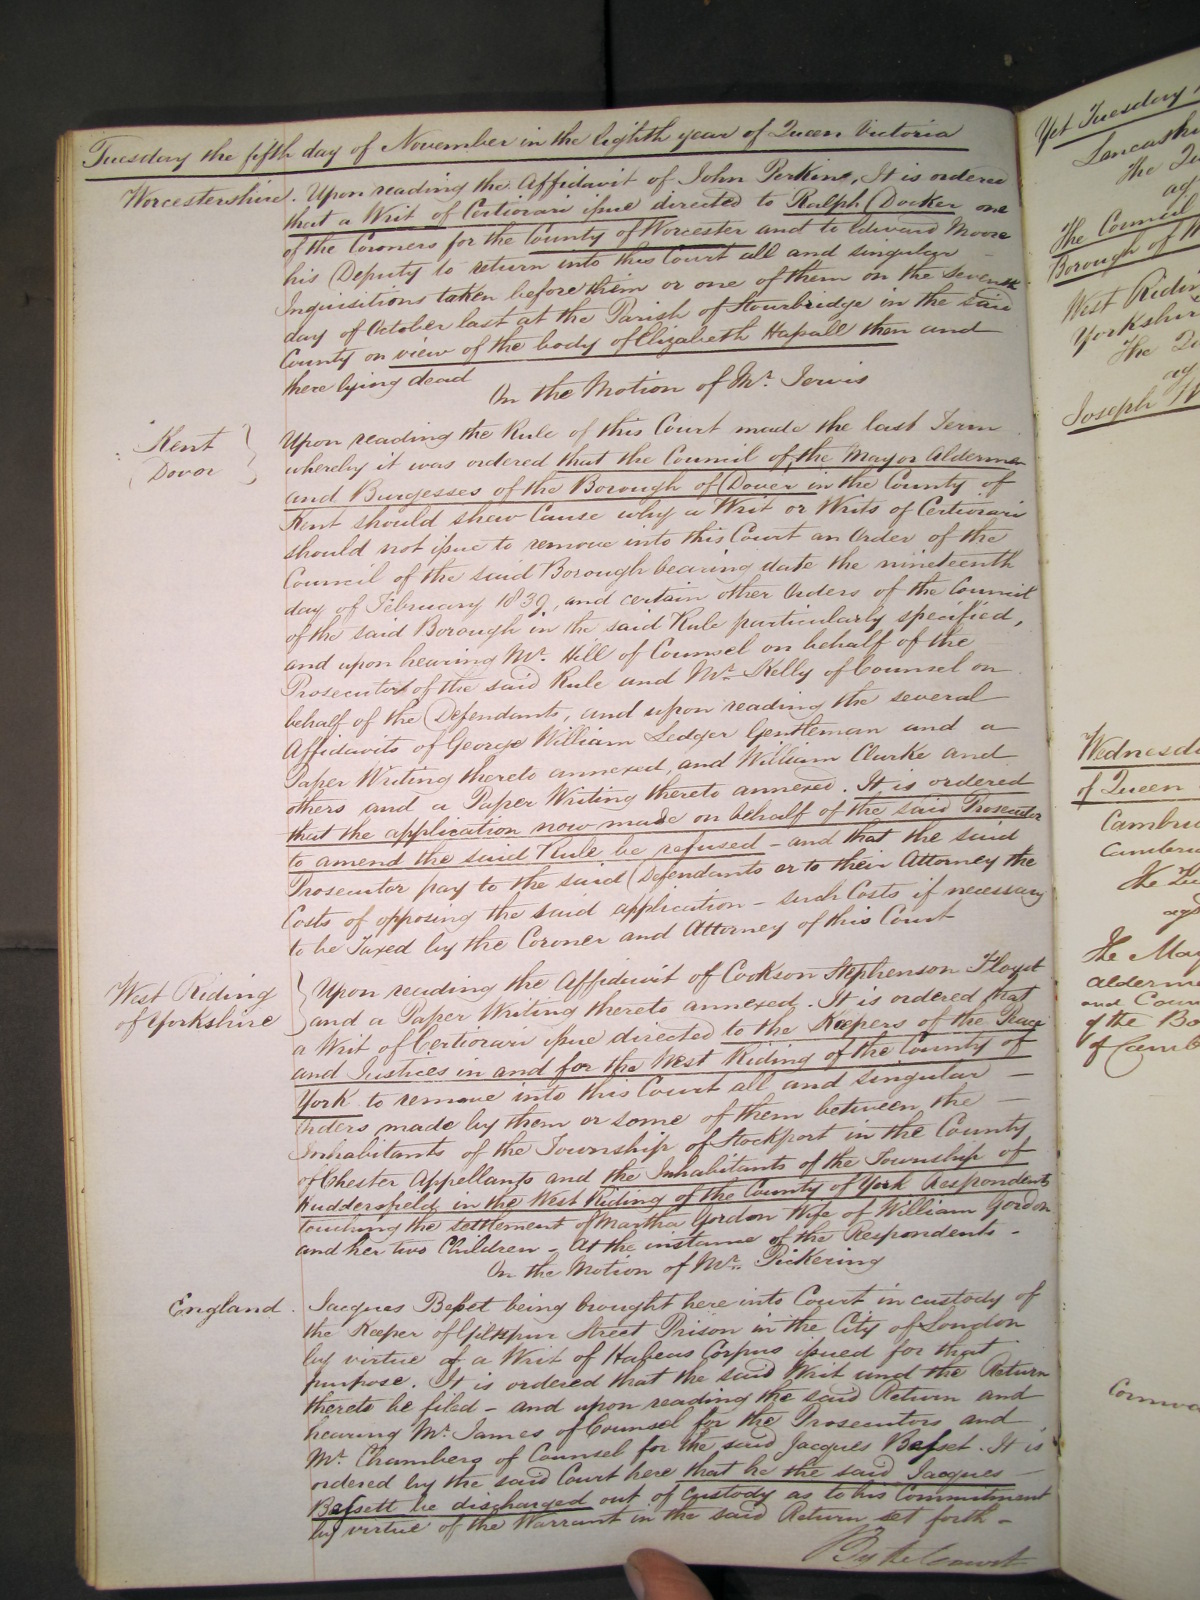 Tuesday the fifth day of November in the Eighth year of Queen Victoria
Worcestershire. Upon reading the Affidavit of John Perkins, It is ordered
that a Writ of Certiorari issue directed to Ralph Docker one
of the Coroners for the County of Worcester and to Edward Moore
his Deputy to return into this Court all and singular
Inquisitions taken before them or one of them on the seventh
day of October last at the Parish of Stourbridge in the said
County on view of the body of Elizabeth Hapall then and
there lying dead
On the Motion of Mr. Jervis
Kent
Dover
Upon reading the Rule of this Court made the last Term
whereby it was ordered that the Council of the Mayor Aldermen
and Burgesses of the Borough of Dover in the County of
Kent should shew Cause why a Writ or Writs of Certiorari
should not issue to remove into this Court an Order of the
Council of the said Borough bearing date the nineteenth
day of February 1839, and certain other Orders of the Council
of the said Borough in the said Rule particularly specified,
and upon hearing Mr. Hill of Counsel on behalf of the
Prosecutor of the said Rule and Mr. Kelly of Counsel on
behalf of the Defendants, and upon reading the several
Affidavits of George William Ledger Gentleman and a
Paper Writing thereto annexed, and William Clarke and
others and a Paper Writing thereto annexed. It is ordered
that the application now made on behalf of the said Prosecutor
to amend the said Rule be refused – and that the said
Prosecutor pay to the said Defendants or to their Attorney the
Costs of opposing the said application – such Costs if necessary
to be Taxed by the Coroner and Attorney of this Court
West Riding
of Yorkshire
Upon reading the Affidavit of Cookson Stephenson Floyd
and a Paper Writing thereto annexed. It is ordered that
a Writ of Certiorari issue directed to the Keepers of the Peace
and Justices in and for the West Riding of the County of
York to remove into this Court all and singular –
Orders made by them or some of them between the –
Inhabitants of the Township of Stockport in the County
of Chester Appellants and the Inhabitants of the Township of
Huddersfield in the West Riding of the County of York Respondents
touching the settlement of Martha Gordon Wife of William Gordon
and her two Children – At the instance of the Respondents –
On the Motion of Mr. Pickering
England.
Jacques Besset being brought here into Court in custody of
the Keeper of Giltspur Street Prison in the City of London
by virtue of a Writ of Habeas Corpus issued for that
purpose. It is ordered that the said Writ and the Return
thereto be filed – and upon reading the said Return and
hearing Mr. James of Counsel for the Prosecutors and
Mr. Chambers of Counsel for the said Jacques Besset. It is
ordered by the said Court here that he the said Jacques –
Bessett be discharged out of custody as to his Commitment
by virtue of the Warrant in the said Return set forth –
By the Court
Yet Tuesday
The
ag
The Council
Borough of
West Ridin
Yorkshir
The
ag
Joseph
Wednesd
of Queen
The
The May
Alderme
and Coun
of the Bo
of Camb
Cornwa